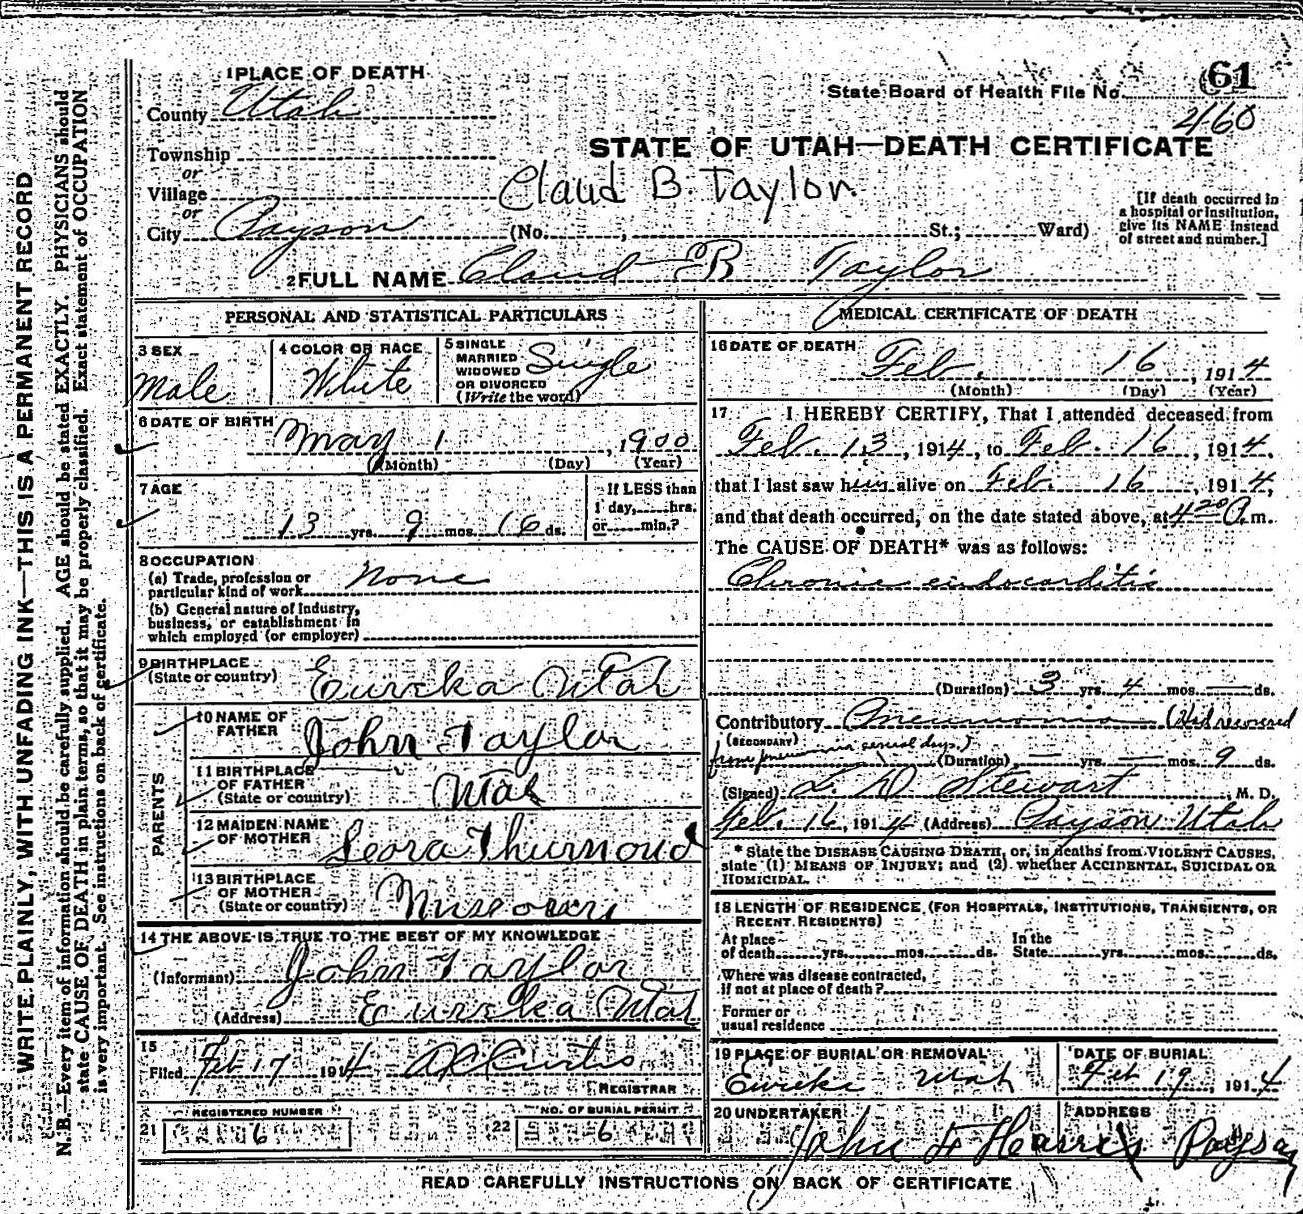 1 PLACE OF DEATH
61
County Utah
State Board of Health File No.
2460
Township
or
STATE OF UTAH—DEATH CERTIFICATE
Village
Claud B. Taylor
or
City Payson (No. , St.; Ward)
[If death occurred in
a hospital or institution,
give its NAME instead
of street and number.]
2 FULL NAME Claud B Taylor
PERSONAL AND STATISTICAL PARTICULARS
3 SEX
Male
4 COLOR OR RACE
White
5 SINGLE
MARRIED
WIDOWED
OR DIVORCED
(Write the word)
Single
6 DATE OF BIRTH
May 1, 1900
(Month) (Day) (Year)
7 AGE
13 yrs. 9 mos. 16 ds.
If LESS than
1 day, hrs.
or min.?
8 OCCUPATION
(a) Trade, profession or
particular kind of work None
(b) General nature of Industry,
business, or establishment in
which employed (or employer)
9 BIRTHPLACE
(State or country) Eureka Utah
PARENTS
10 NAME OF
FATHER John Taylor
11 BIRTHPLACE
OF FATHER
(State or country) Utah
12 MAIDEN NAME
OF MOTHER Leora Thurmoud
13 BIRTHPLACE
OF MOTHER
(State or country) Missouri
14 THE ABOVE IS TRUE TO THE BEST OF MY KNOWLEDGE
(Informant) John Taylor
(Address) Eureka Utah
15
Filed Feb 17 1914 Curtis
REGISTRAR
REGISTERED NUMBER
21 6
NO. OF BURIAL PERMIT
22 6
MEDICAL CERTIFICATE OF DEATH
16 DATE OF DEATH
Feb. 16, 1914
(Month) (Day) (Year)
17 I HEREBY CERTIFY, That I attended deceased from
Feb. 13, 1914, to Feb. 16, 1914,
that I last saw him alive on Feb. 16, 1914,
and that death occurred, on the date stated above, at 4 20 A. m.
The CAUSE OF DEATH* was as follows:
Chronic endocarditis
(Duration) 3 yrs. 4 mos. — ds.
Contributory Pneumonia (Had recovered
(SECONDARY)
from pneumonia several days.)
(Duration) yrs. — mos. 9 ds.
(Signed) L. D. Stewart, M. D.
Feb. 16, 1914 (Address) Payson Utah
* State the DISEASE CAUSING DEATH, or, in deaths from VIOLENT CAUSES,
state (1) MEANS OF INJURY; and (2) whether ACCIDENTAL, SUICIDAL OR
HOMICIDAL.
18 LENGTH OF RESIDENCE (FOR HOSPITALS, INSTITUTIONS, TRANSIENTS, OR
RECENT RESIDENTS)
At place
of death yrs. mos. ds.
In the
State yrs. mos. ds.
Where was disease contracted,
if not at place of death?
Former or
usual residence
19 PLACE OF BURIAL OR REMOVAL
Eureka Utah
DATE OF BURIAL
Feb 19, 1914
20 UNDERTAKER
John
ADDRESS
Payson
READ CAREFULLY INSTRUCTIONS ON BACK OF CERTIFICATE
WRITE PLAINLY, WITH UNFADING INK—THIS IS A PERMANENT RECORD
N. B.—Every item of information should be carefully supplied. AGE should be stated EXACTLY. PHYSICIANS should
state CAUSE OF DEATH in plain terms, so that it may be properly classified. Exact statement of OCCUPATION
is very important. See instructions on back of certificate.